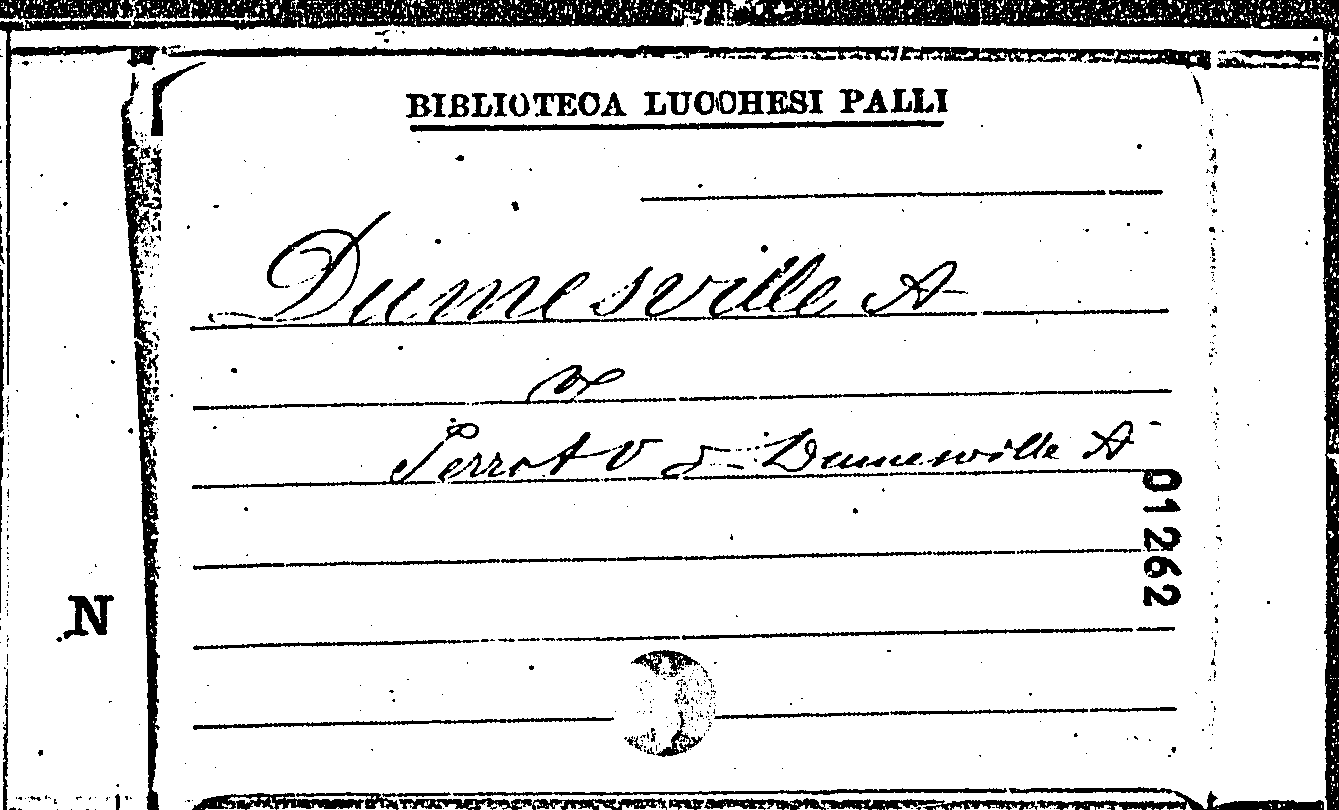 BIBLIOTECA LUCCHESI PALLI
Dumesville A
V
Perrot V & Dumesville A
01262
N